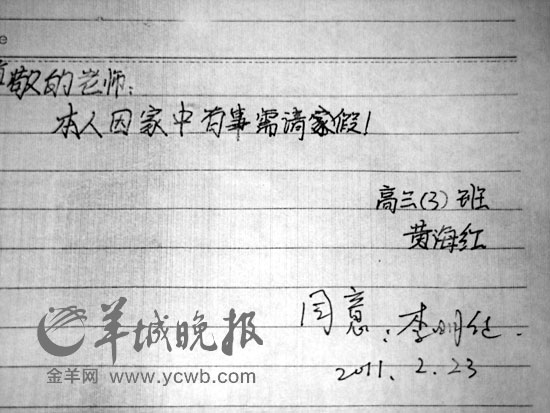 尊敬的老师：
本人因家中有事需请家假！
高三(3)班
黄海红
同意：李明任.
2011.2.23
羊城晚报
金羊网 www.ycwb.com